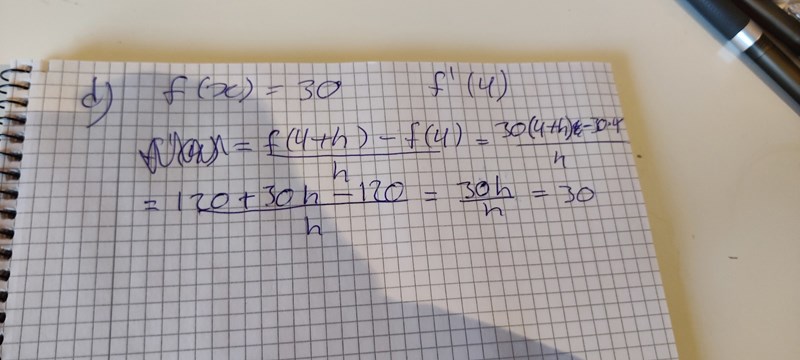 d) f(x) = 30 f'(4)
= f(4+h) - f(4) / h = 30(4+h) - 30·4 / h
= 120 + 30h - 120 / h = 30h / h = 30